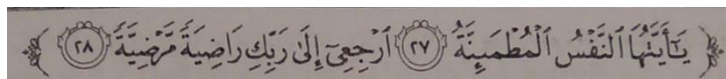 ﴿يَٰٓأَيَّتُهَا ٱلنَّفۡسُ ٱلۡمُطۡمَئِنَّةُ ٢٧ ٱرۡجِعِيٓ إِلَىٰ رَبِّكِ رَاضِيَةٗ مَّرۡضِيَّةٗ ٢٨﴾